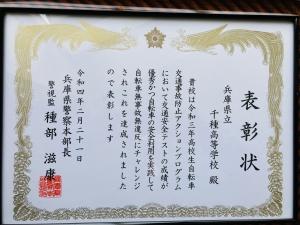 表彰状
兵庫県立
千種高等学校 殿
貴校は令和三年高校生自転車
交通事故防止アクションプログラム
において交通安全テストの成績が
優秀かつ自転車の安全利用を実践して
自転車無事故無違反にチャレンジ
されこれを達成されました
ので表彰します
令和四年二月二十一日
兵庫県警察本部長
警視監 種部 滋康